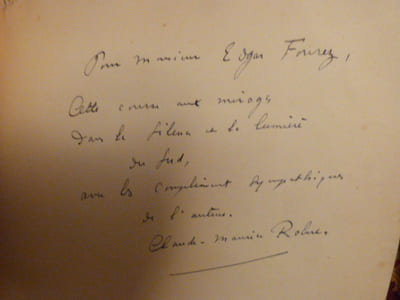 Pour Monsieur Edgar Fourez,
Cette course aux mirages
Dans le silence et la lumière
du Sud,
avec les compliments sympathiques
de l'auteur.
Claude-Maurice Robert.